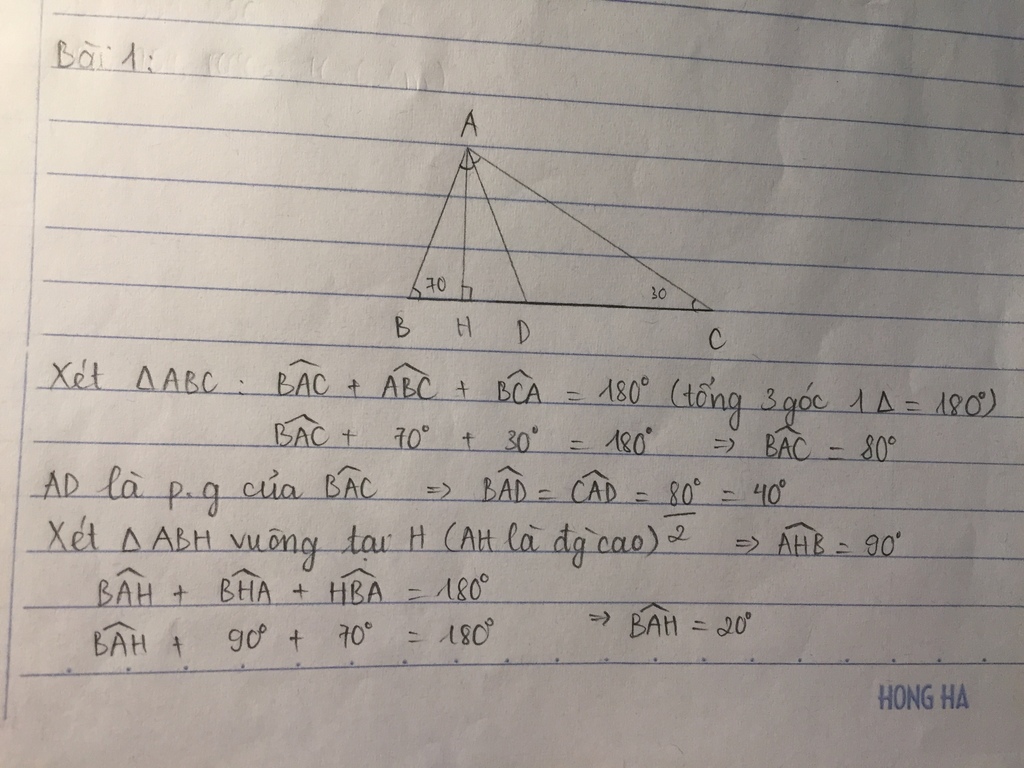 Bài 1:
A
70
30
B H D C
Xét ΔABC: B̂AC + ÂBC + B̂CA = 180° (tổng 3 góc 1 Δ = 180°)
B̂AC + 70° + 30° = 180° => B̂AC = 80°
AD là p.g của B̂AC => B̂AD = ĈAD = 80°/2 = 40°
Xét ΔABH vuông tại H (AH là đg cao) => ÂHB = 90°
B̂AH + B̂HA + ĤBA = 180°
B̂AH + 90° + 70° = 180° => B̂AH = 20°
HONG HA